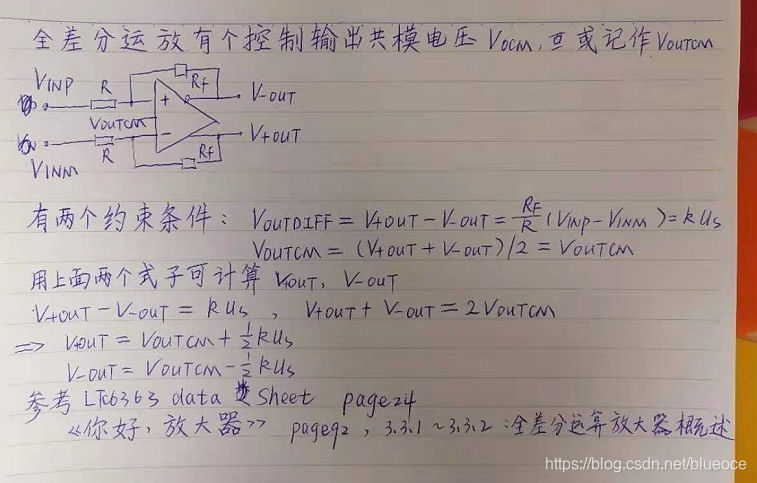 全差分运放有个控制输出共模电压 VOCM, 或记作 VOUTCM
VINP
R
Rf
V-OUT
VOUTCM
+
-
V+OUT
R
Rf
VINM
有两个约束条件: VOUTDIFF = V+OUT - V-OUT = RF/R (VINP - VINM) = kUs
VOUTCM = (V+OUT + V-OUT)/2 = VOUTCM
用上面两个式子可计算 V+OUT, V-OUT
V+OUT - V-OUT = kUs , V+OUT + V-OUT = 2VOUTCM
=> V+OUT = VOUTCM + 1/2 kUs
V-OUT = VOUTCM - 1/2 kUs
参考 LTC6363 data Sheet page24
《你好,放大器》 page92, 3.3.1~3.3.2:全差分运算放大器概述
https://blog.csdn.net/blueoce